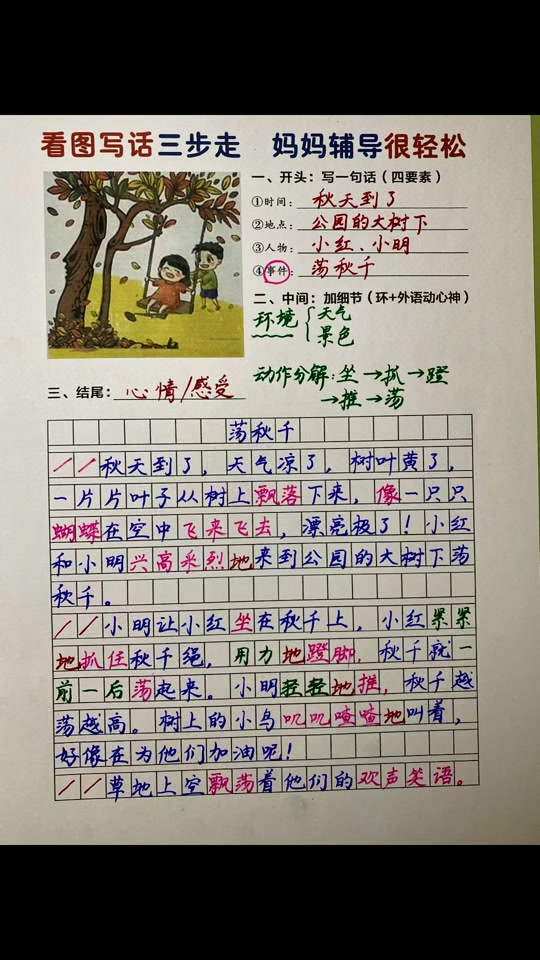 看图写话三步走 妈妈辅导很轻松
一、开头：写一句话（四要素）
①时间：秋天到了
②地点：公园的大树下
③人物：小红、小明
④事件：荡秋千
二、中间：加细节（环+外语动心神）
环境{天气
景色
动作分解：坐→抓→蹬
→推→荡
三、结尾：心情/感受
荡秋千
//秋天到了，天气凉了，树叶黄了，
一片片叶子从树上飘落下来，像一只只
蝴蝶在空中飞来飞去，漂亮极了！小红
和小明兴高采烈地来到公园的大树下荡
秋千。
//小明让小红坐在秋千上，小红紧紧
地抓住秋千绳，用力地蹬脚，秋千就一
前一后荡起来。小明轻轻地推，秋千越
荡越高。树上的小鸟叽叽喳喳地叫着，
好像在为他们加油呢！
//草地上空飘荡着他们的欢声笑语。